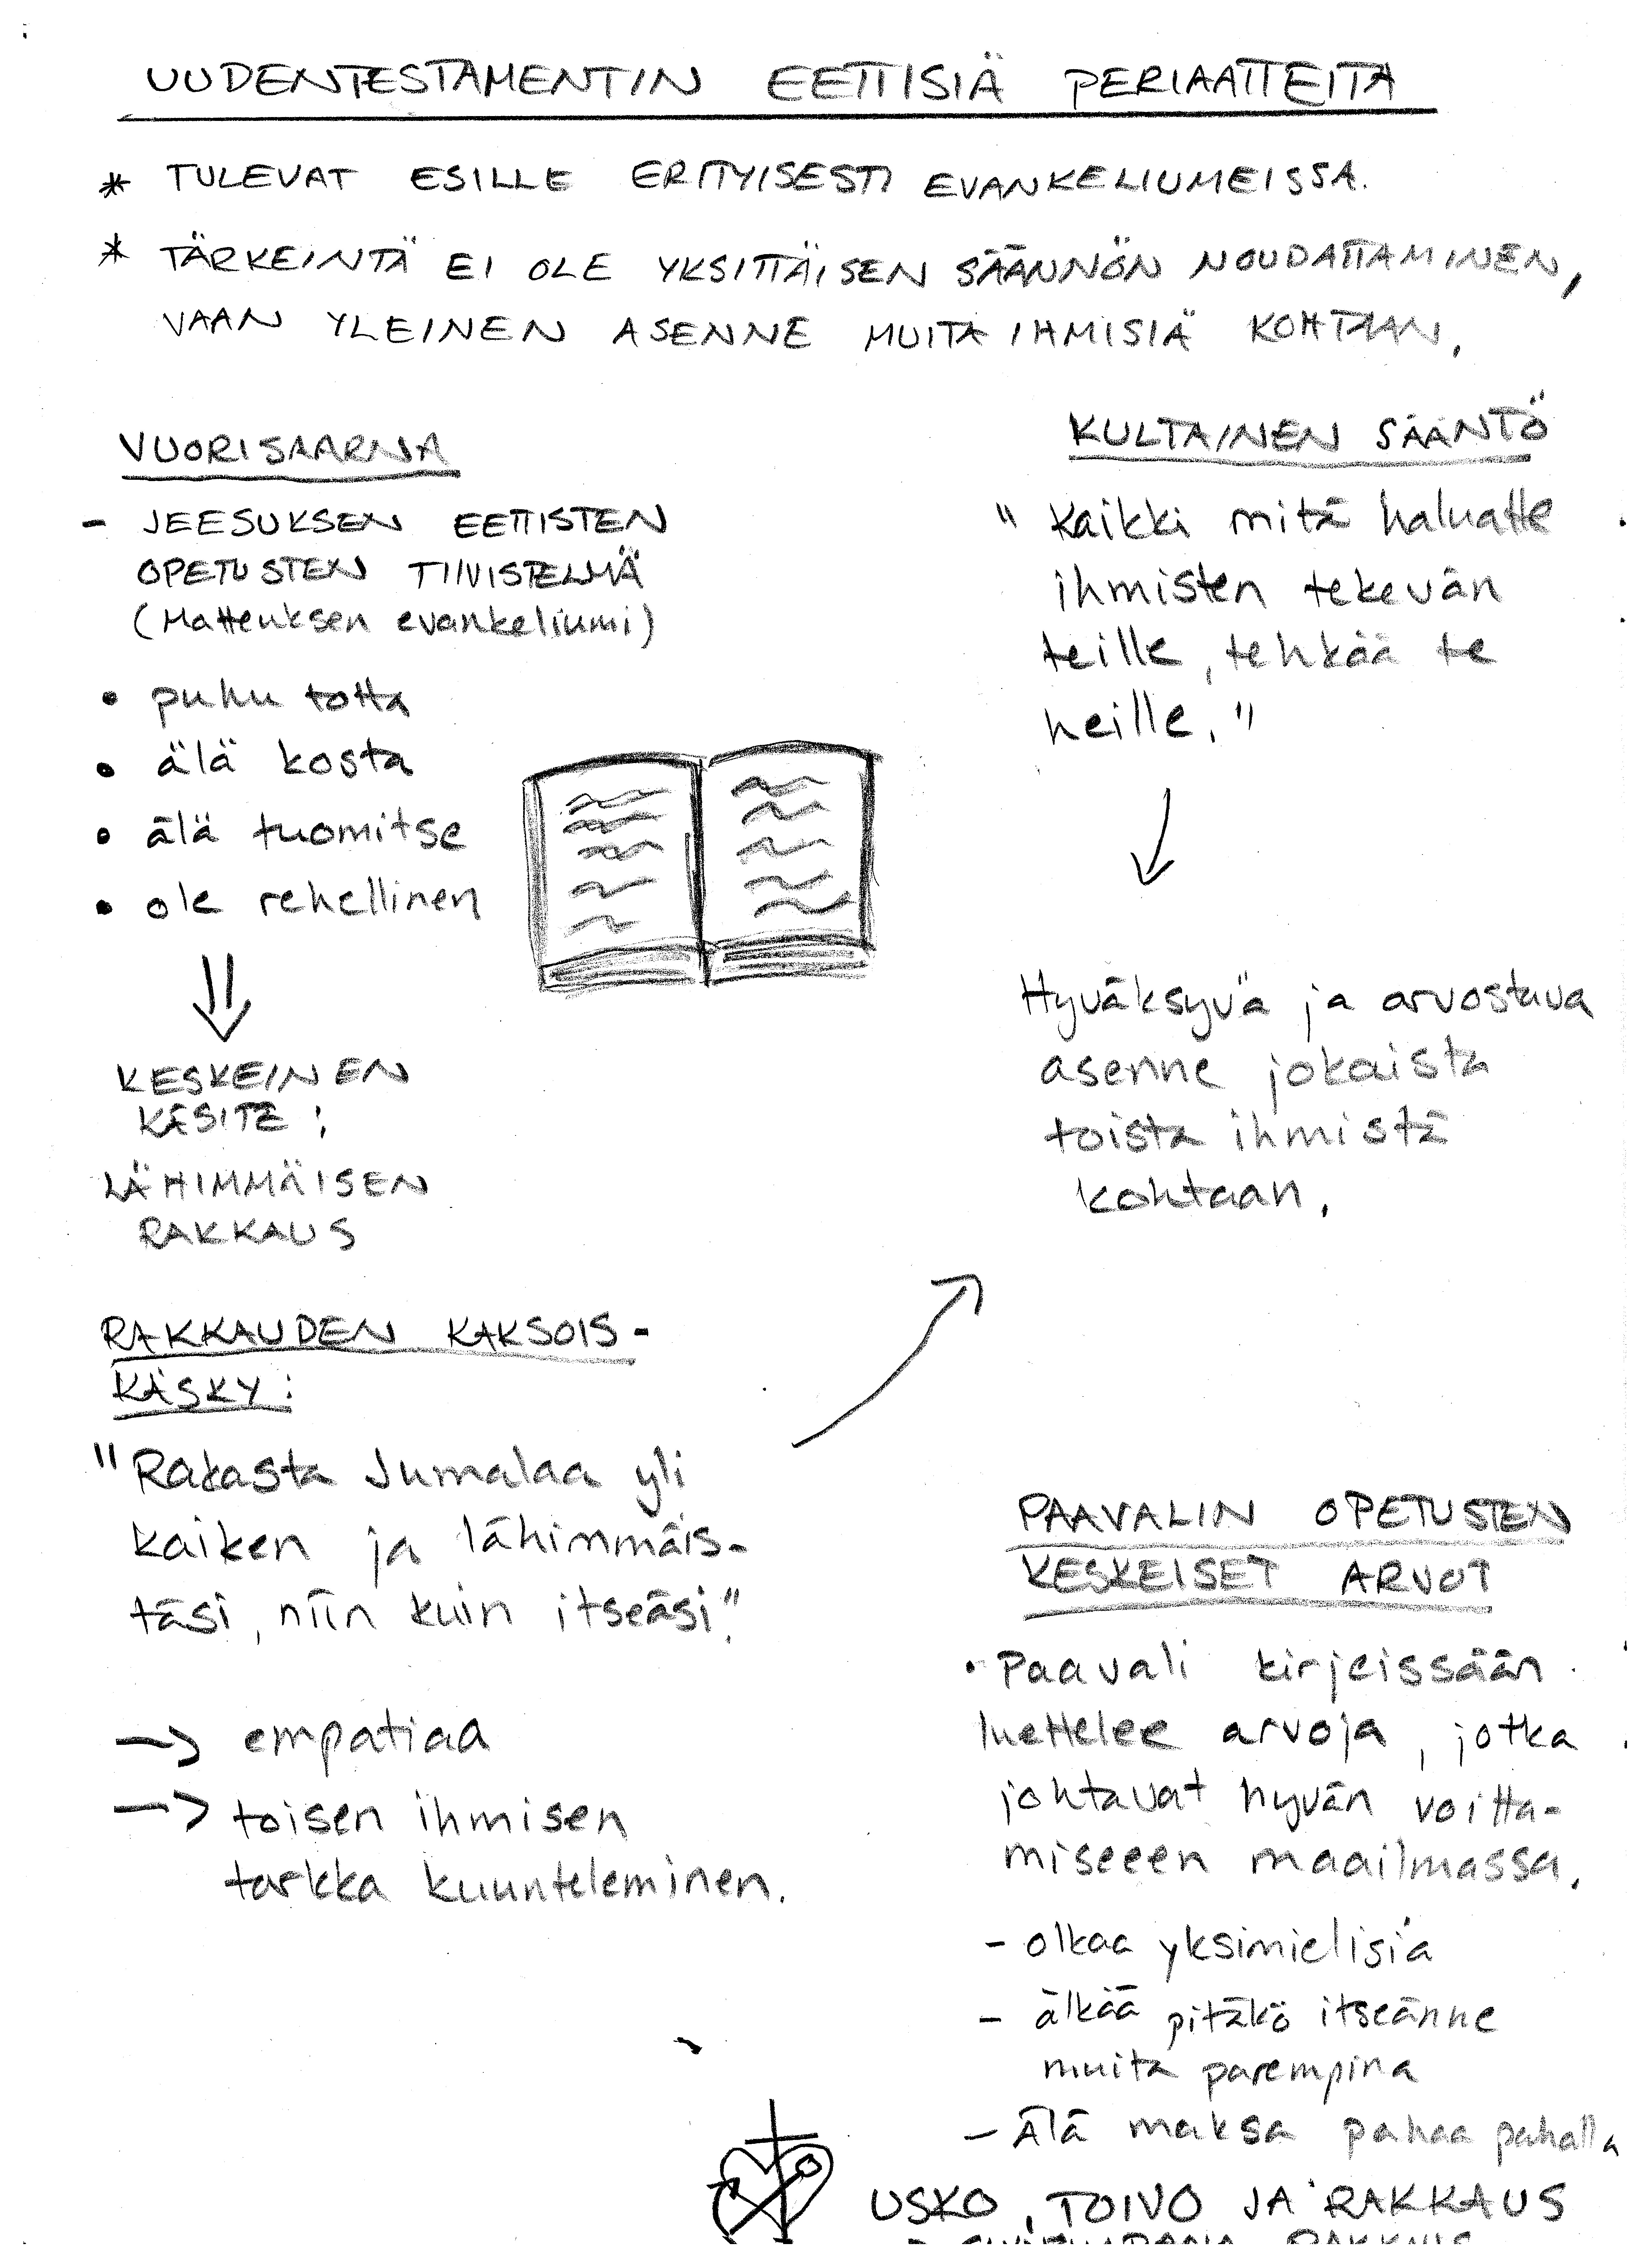 UUDENTESTAMENTIN EETTISIÄ PERIAATTEITA
* TULEVAT ESILLE ERITYISESTI EVANKELIUMEISSA.
* TÄRKEINTÄ EI OLE YKSITTÄISEN SÄÄNNÖN NOUDATTAMINEN,
VAAN YLEINEN ASENNE MUITA IHMISIÄ KOHTAAN.
VUORISAARNA
- JEESUKSEN EETTISTEN
OPETUSTEN TIIVISTELMÄ
(Matteuksen evankeliumi)
• puhu totta
• älä kosta
• älä tuomitse
• ole rehellinen
KESKEINEN
KÄSITE:
LÄHIMMÄISEN
RAKKAUS
RAKKAUDEN KAKSOIS-
KÄSKY:
"Rakasta Jumalaa yli
kaiken ja lähimmäis-
täsi, niin kuin itseäsi."
→ empatiaa
→ toisen ihmisen
tarkka kuunteleminen.
KULTAINEN SÄÄNTÖ
"Kaikki mitä haluatte
ihmisten tekevän
teille, tehkää te
heille."
Hyväksyvä ja arvostava
asenne jokaista
toista ihmistä
kohtaan.
PAAVALIN OPETUSTEN
KESKEISET ARVOT
• Paavali kirjeissään
luettelee arvoja, jotka
johtavat hyvän voitta-
miseeen maailmassa.
- olkaa yksimielisiä
- älkää pitäkö itseänne
muita parempina
- Älä maksa pahaa pahalla
USKO, TOIVO JA RAKKAUS
RAKKAUS